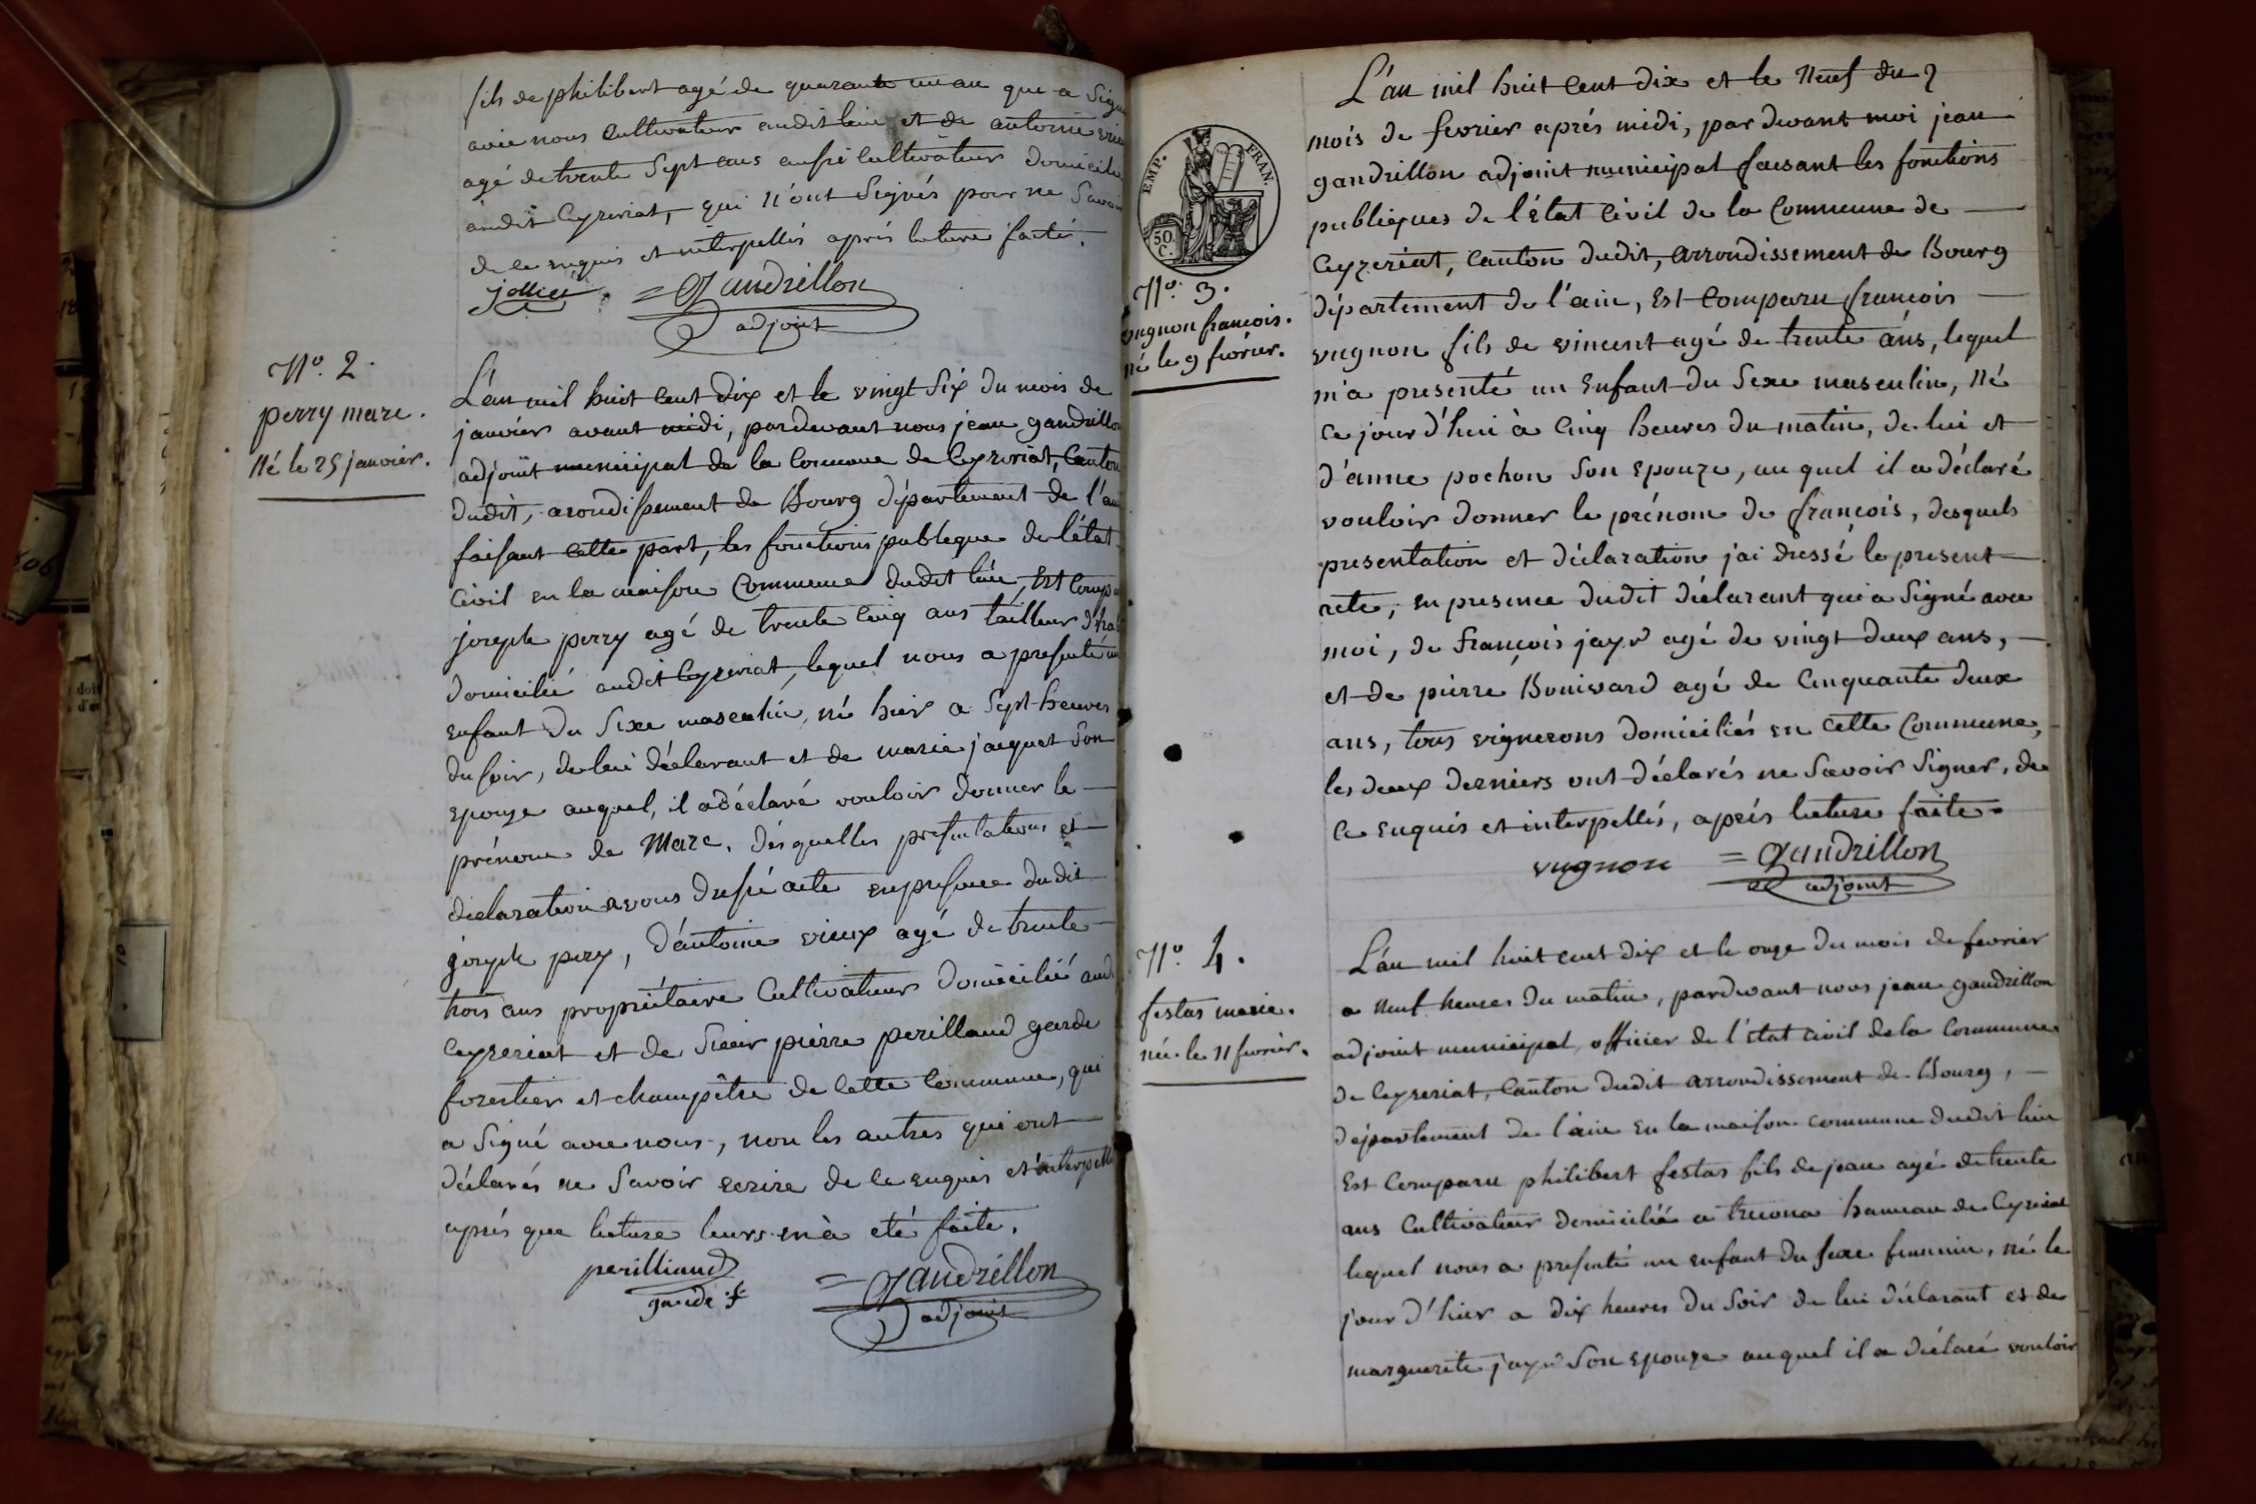 fils de philibert agé de quarante un an que a signé
avec nous cultivateur audit lieu et de antoine vieux
agé de trente sept ans aussi cultivateur domicilié
audit Ceyzeriat, qui n'ont signés pour ne savoir
de ce enquis et interpellés aprés lecture faitte.
= Gandrillon
adjoint
N.° 2.
perry marc.
né le 25 janvier.
L'an mil huit cent dix et le vingt six du mois de
janvier avant midi, pardevant nous jean gandrillon
adjoint municipal de la Commune de Ceyzeriat, Canton
dudit, arondissement de Bourg département de l'ain
faisant cette part, les fonctions publique de l'état
Civil en la maison Commune dudit lieu, Est Comparu
joseph perry agé de trente cinq ans tailleur d'habit
domicilié audit Ceyzeriat, lequel nous a presenté un
enfant du sexe masculin, né hier a sept heures
du soir, de lui déclarant et de marie jacquet son
epouze auquel, il a déclaré vouloir donner le
prénom de Marc, désquelles presentations et
déclaration avons dressé acte en presence dudit
joseph pery, d'antoine vieux agé de trente
trois ans propriétaire Cultivateur domicilié audit
Ceyzeriat et de Sieur pierre perilland garde
forestier et champêtre de cette Commune, qui
a signé avec nous, non les autres qui ont
déclarés ne savoir ecrire de ce enquis et interpellés
aprés que lecture leurs en à eté faite.
perilliand
garde f
= Gandrillon
adjoint
EMP. FRAN.
50 C.
N.° 3.
vugnon francois.
né le 9 fevrier.
L'an mil huit cent dix et le neuf du
mois de fevrier aprés midi, par devant moi jean
gandrillon adjoint municipal faisant les fonctions
publiques de l'état Civil de la Commune de
Ceyzeriat, Canton dudit, arrondissement de Bourg
département de l'ain, Est Comparu françois
vugnon fils de vincent agé de trente ans, lequel
m'a presenté un Enfant du Sexe masculin, né
ce jour d'hui à cinq heures du matin, de lui et
d'anne pochon son epouze, au quel il a déclaré
vouloir donner le prénom de françois, desquels
presentation et déclaration j'ai dressé le present
acte, en presence dudit déclarant qui a signé avec
moi, de françois jayr agé de vingt deux ans,
et de pierre Bonivard agé de Cinquante deux
ans, tous vignerons domiciliés en cette Commune,
les deux derniers ont déclarés ne savoir signer, de
ce enquis et interpellés, aprés lecture faite.
vugnon = Gandrillon
adjoint
N.° 4.
festas marie.
née le 11 fevrier.
L'an mil huit cent dix et le onze du mois de fevrier
a neuf heures du matin, pardevant nous jean gandrillon
adjoint municipal officier de l'état civil de la Commune
de Ceyzeriat, Canton dudit arrondissement de Bourg,
département de l'ain en la maison commune dudit lieu
Est Comparu philibert festas fils de jean agé de trente
ans Cultivateur domicilié a hameau de Ceyzeriat
lequel nous a presenté un enfant du sexe feminin, né le
jour d'hier a dix heures du soir de lui déclarant et de
marguerite jayr son epouze auquel il a déclaré vouloir